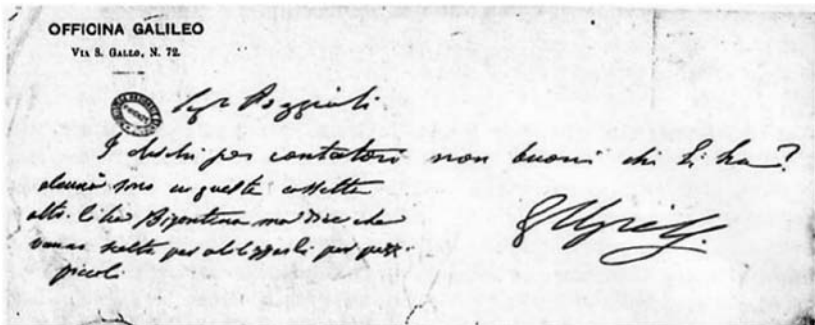 OFFICINA GALILEO
VIA S. GALLO, N. 72.
Sigr Poggiali
I dischi per contatori non buoni chi li ha?
alcuni sono in queste cassette
altri li ha Bigontina ma dice che
vanno scelti per utilizzarli per pezzi
piccoli